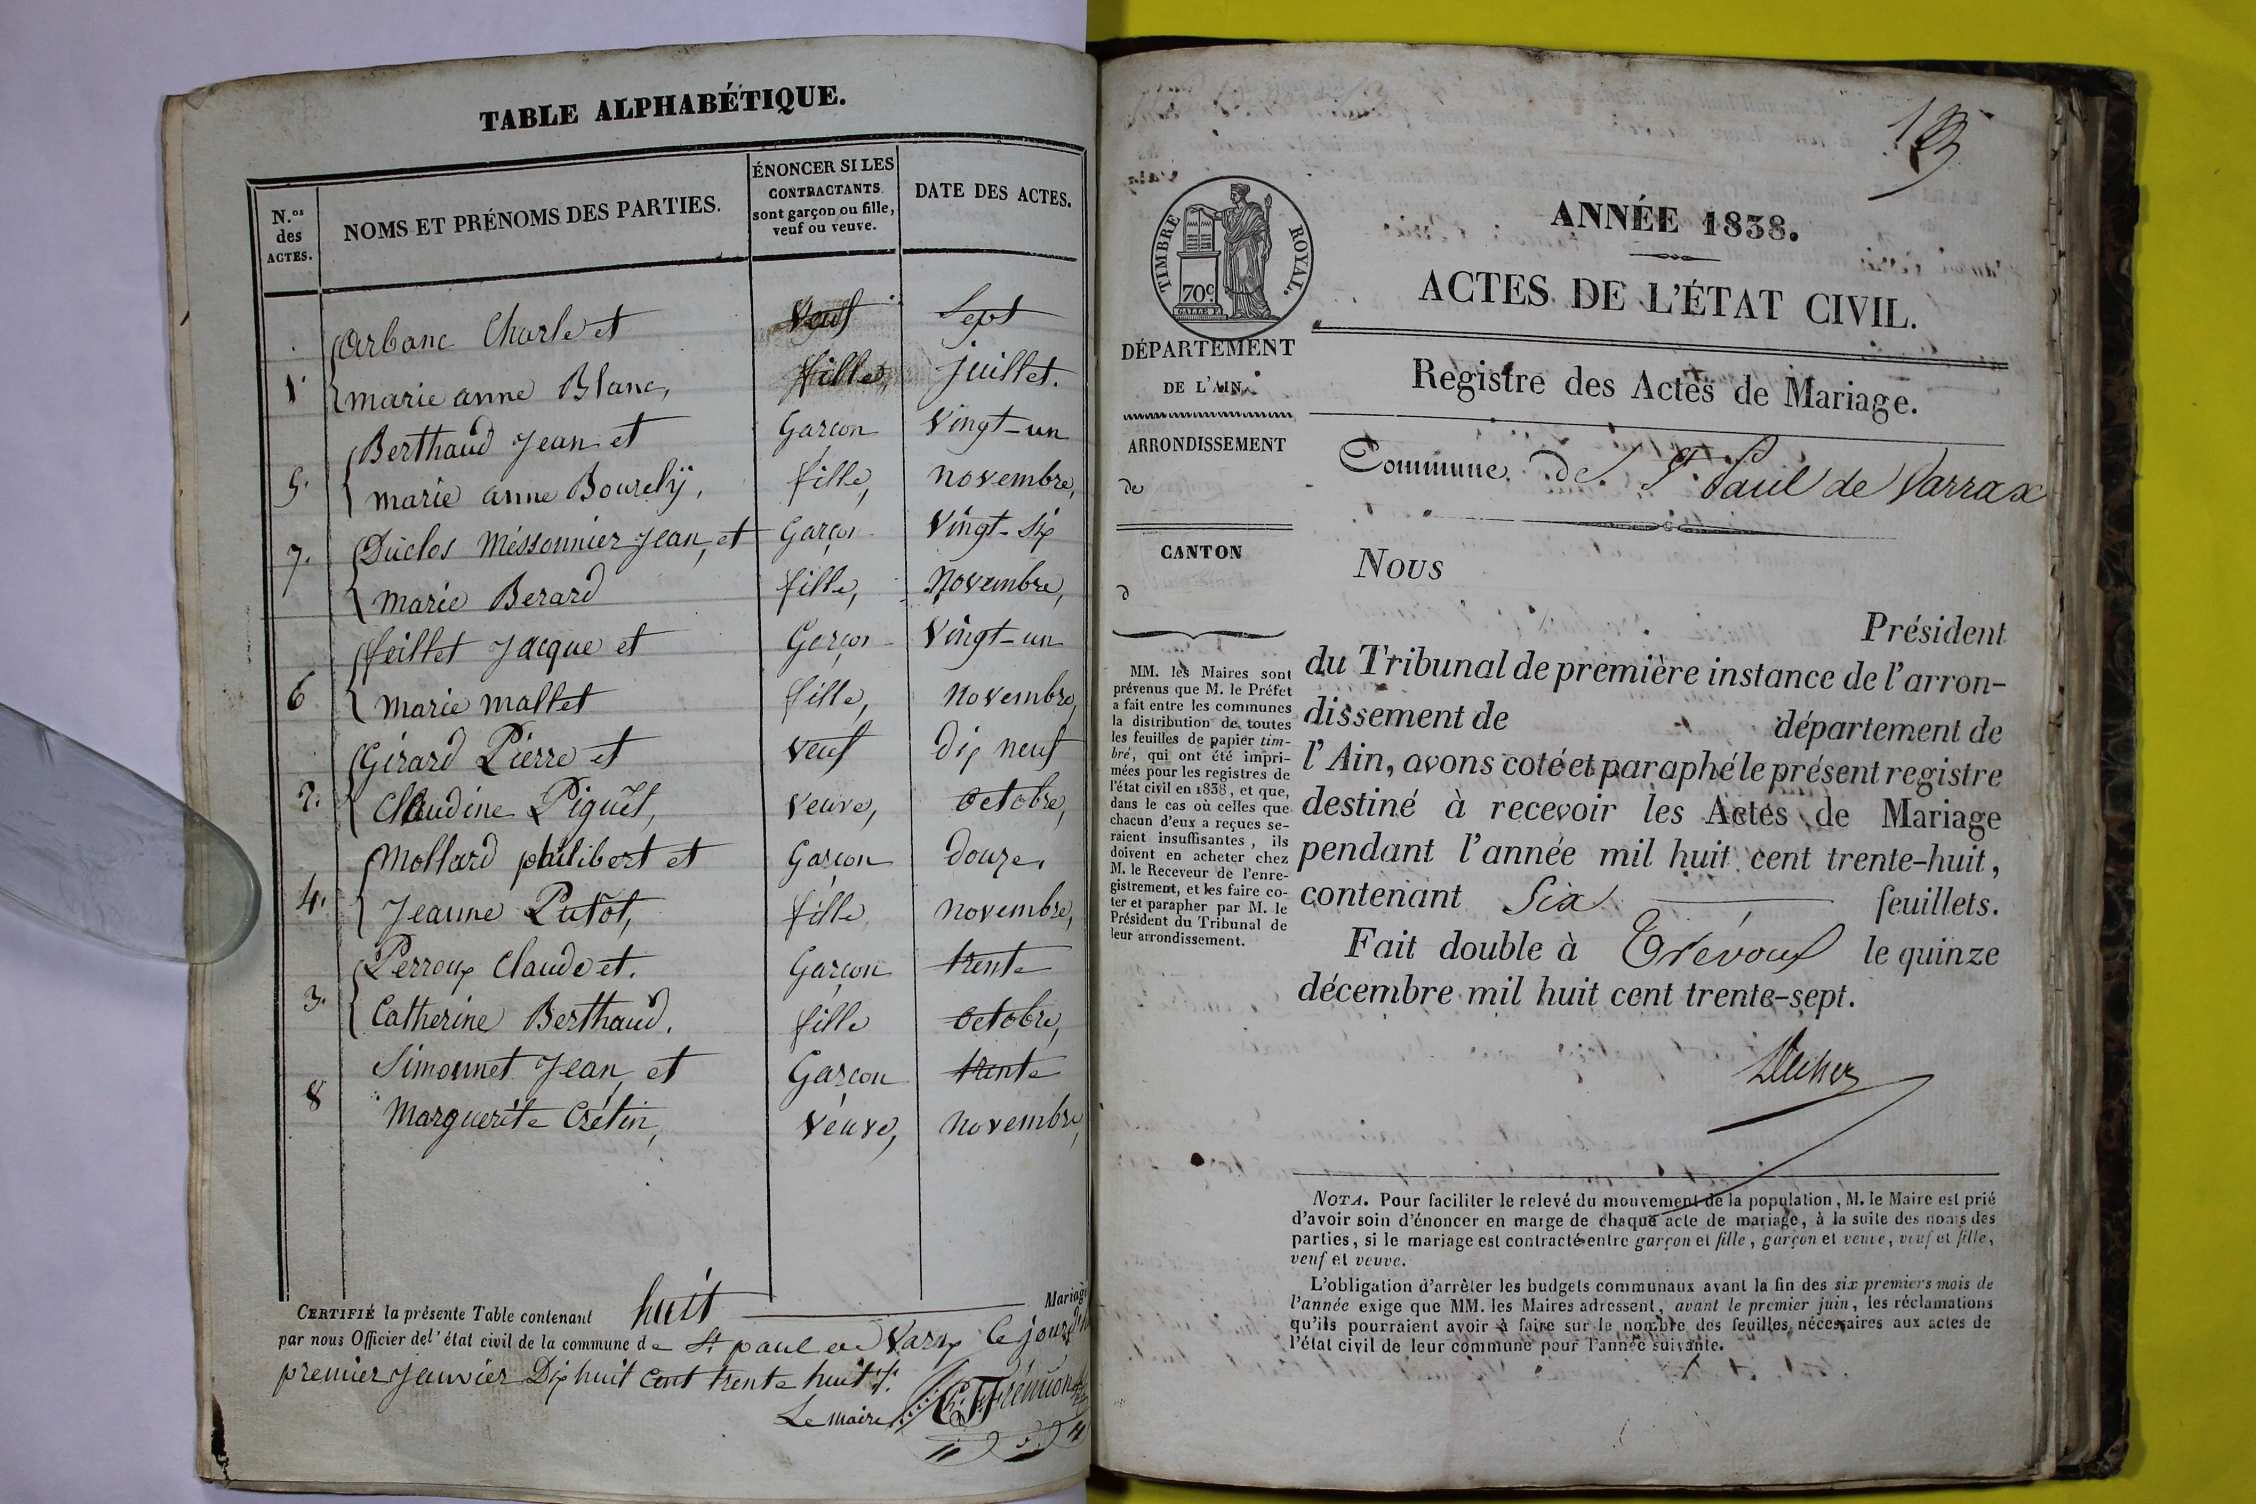 TABLE ALPHABÉTIQUE.
N.os des ACTES.
NOMS ET PRÉNOMS DES PARTIES.
ÉNONCER SI LES
CONTRACTANTS
sont garçon ou fille,
veuf ou veuve.
DATE DES ACTES.
Arbanc Charle et Veuf Sept
1. marie anne Blanc, fille, juillet.
Berthaud Jean et Garcon Vingt-un
5. marie anne Bourelÿ, fille, novembre,
7. Duclos Méssonnier Jean, et Garçon Vingt-Six
Marie Berard fille, Novembre,
feillet Jacque et Garçon Vingt-un
6 Marie mallet fille, novembre,
Gérard Pierre et Veuf dix neuf
2. Claudine Piguet, veuve, octobre,
Mollard philibert et Garçon douze,
4. Jeanne Putot, fille novembre,
Perroux Claude et. Garçon trente
3. Catherine Berthaud. fille octobre,
Simonnet Jean, et Garcon trente
8 Marguerite Crétin, Veuve, novembre,
CERTIFIÉ la présente Table contenant huit Mariage
par nous Officier de l'état civil de la commune de St paul de Varax ce jour
premier Janvier Dix huit Cent trente huit.
Le Maire
133
TIMBRE ROYAL.
70c
ANNÉE 1838.
ACTES DE L'ÉTAT CIVIL.
Registre des Actes de Mariage.
Commune de St Paul de Varrax
DÉPARTEMENT
DE L'AIN.
ARRONDISSEMENT
de
CANTON
d
MM. les Maires sont
prévenus que M. le Préfet
a fait entre les communes
la distribution de toutes
les feuilles de papier tim-
bré, qui ont été impri-
mées pour les registres de
l'état civil en 1838, et que,
dans le cas où celles que
chacun d'eux a reçues se-
raient insuffisantes, ils
doivent en acheter chez
M. le Receveur de l'enre-
gistrement, et les faire co-
ter et parapher par M. le
Président du Tribunal de
leur arrondissement.
Nous
Président
du Tribunal de première instance de l'arron-
dissement de département de
l'Ain, avons coté et paraphé le présent registre
destiné à recevoir les Actes de Mariage
pendant l'année mil huit cent trente-huit,
contenant Six feuillets.
Fait double à Trévoux le quinze
décembre mil huit cent trente-sept.
NOTA. Pour faciliter le relevé du mouvement de la population, M. le Maire est prié
d'avoir soin d'énoncer en marge de chaque acte de mariage, à la suite des noms des
parties, si le mariage est contracté entre garçon et fille, garçon et veuve, veuf et fille,
veuf et veuve.
L'obligation d'arrêter les budgets communaux avant la fin des six premiers mois de
l'année exige que MM. les Maires adressent, avant le premier juin, les réclamations
qu'ils pourraient avoir à faire sur le nombre des feuilles nécessaires aux actes de
l'état civil de leur commune pour l'année suivante.